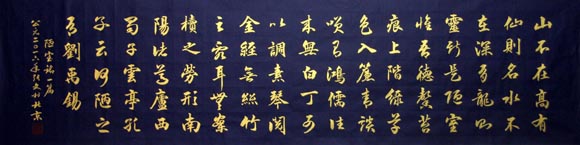 山不在高有
仙則名水不
在深有龍則
靈斯是陋室
惟吾德馨苔
痕上階綠草
色入簾青談
笑有鴻儒往
來無白丁可
以調素琴閱
金經無絲竹
之亂耳無案
牘之勞形南
陽諸葛廬西
蜀子雲亭孔
子云何陋之
有劉禹錫
陋室銘一篇
公元二〇一六年